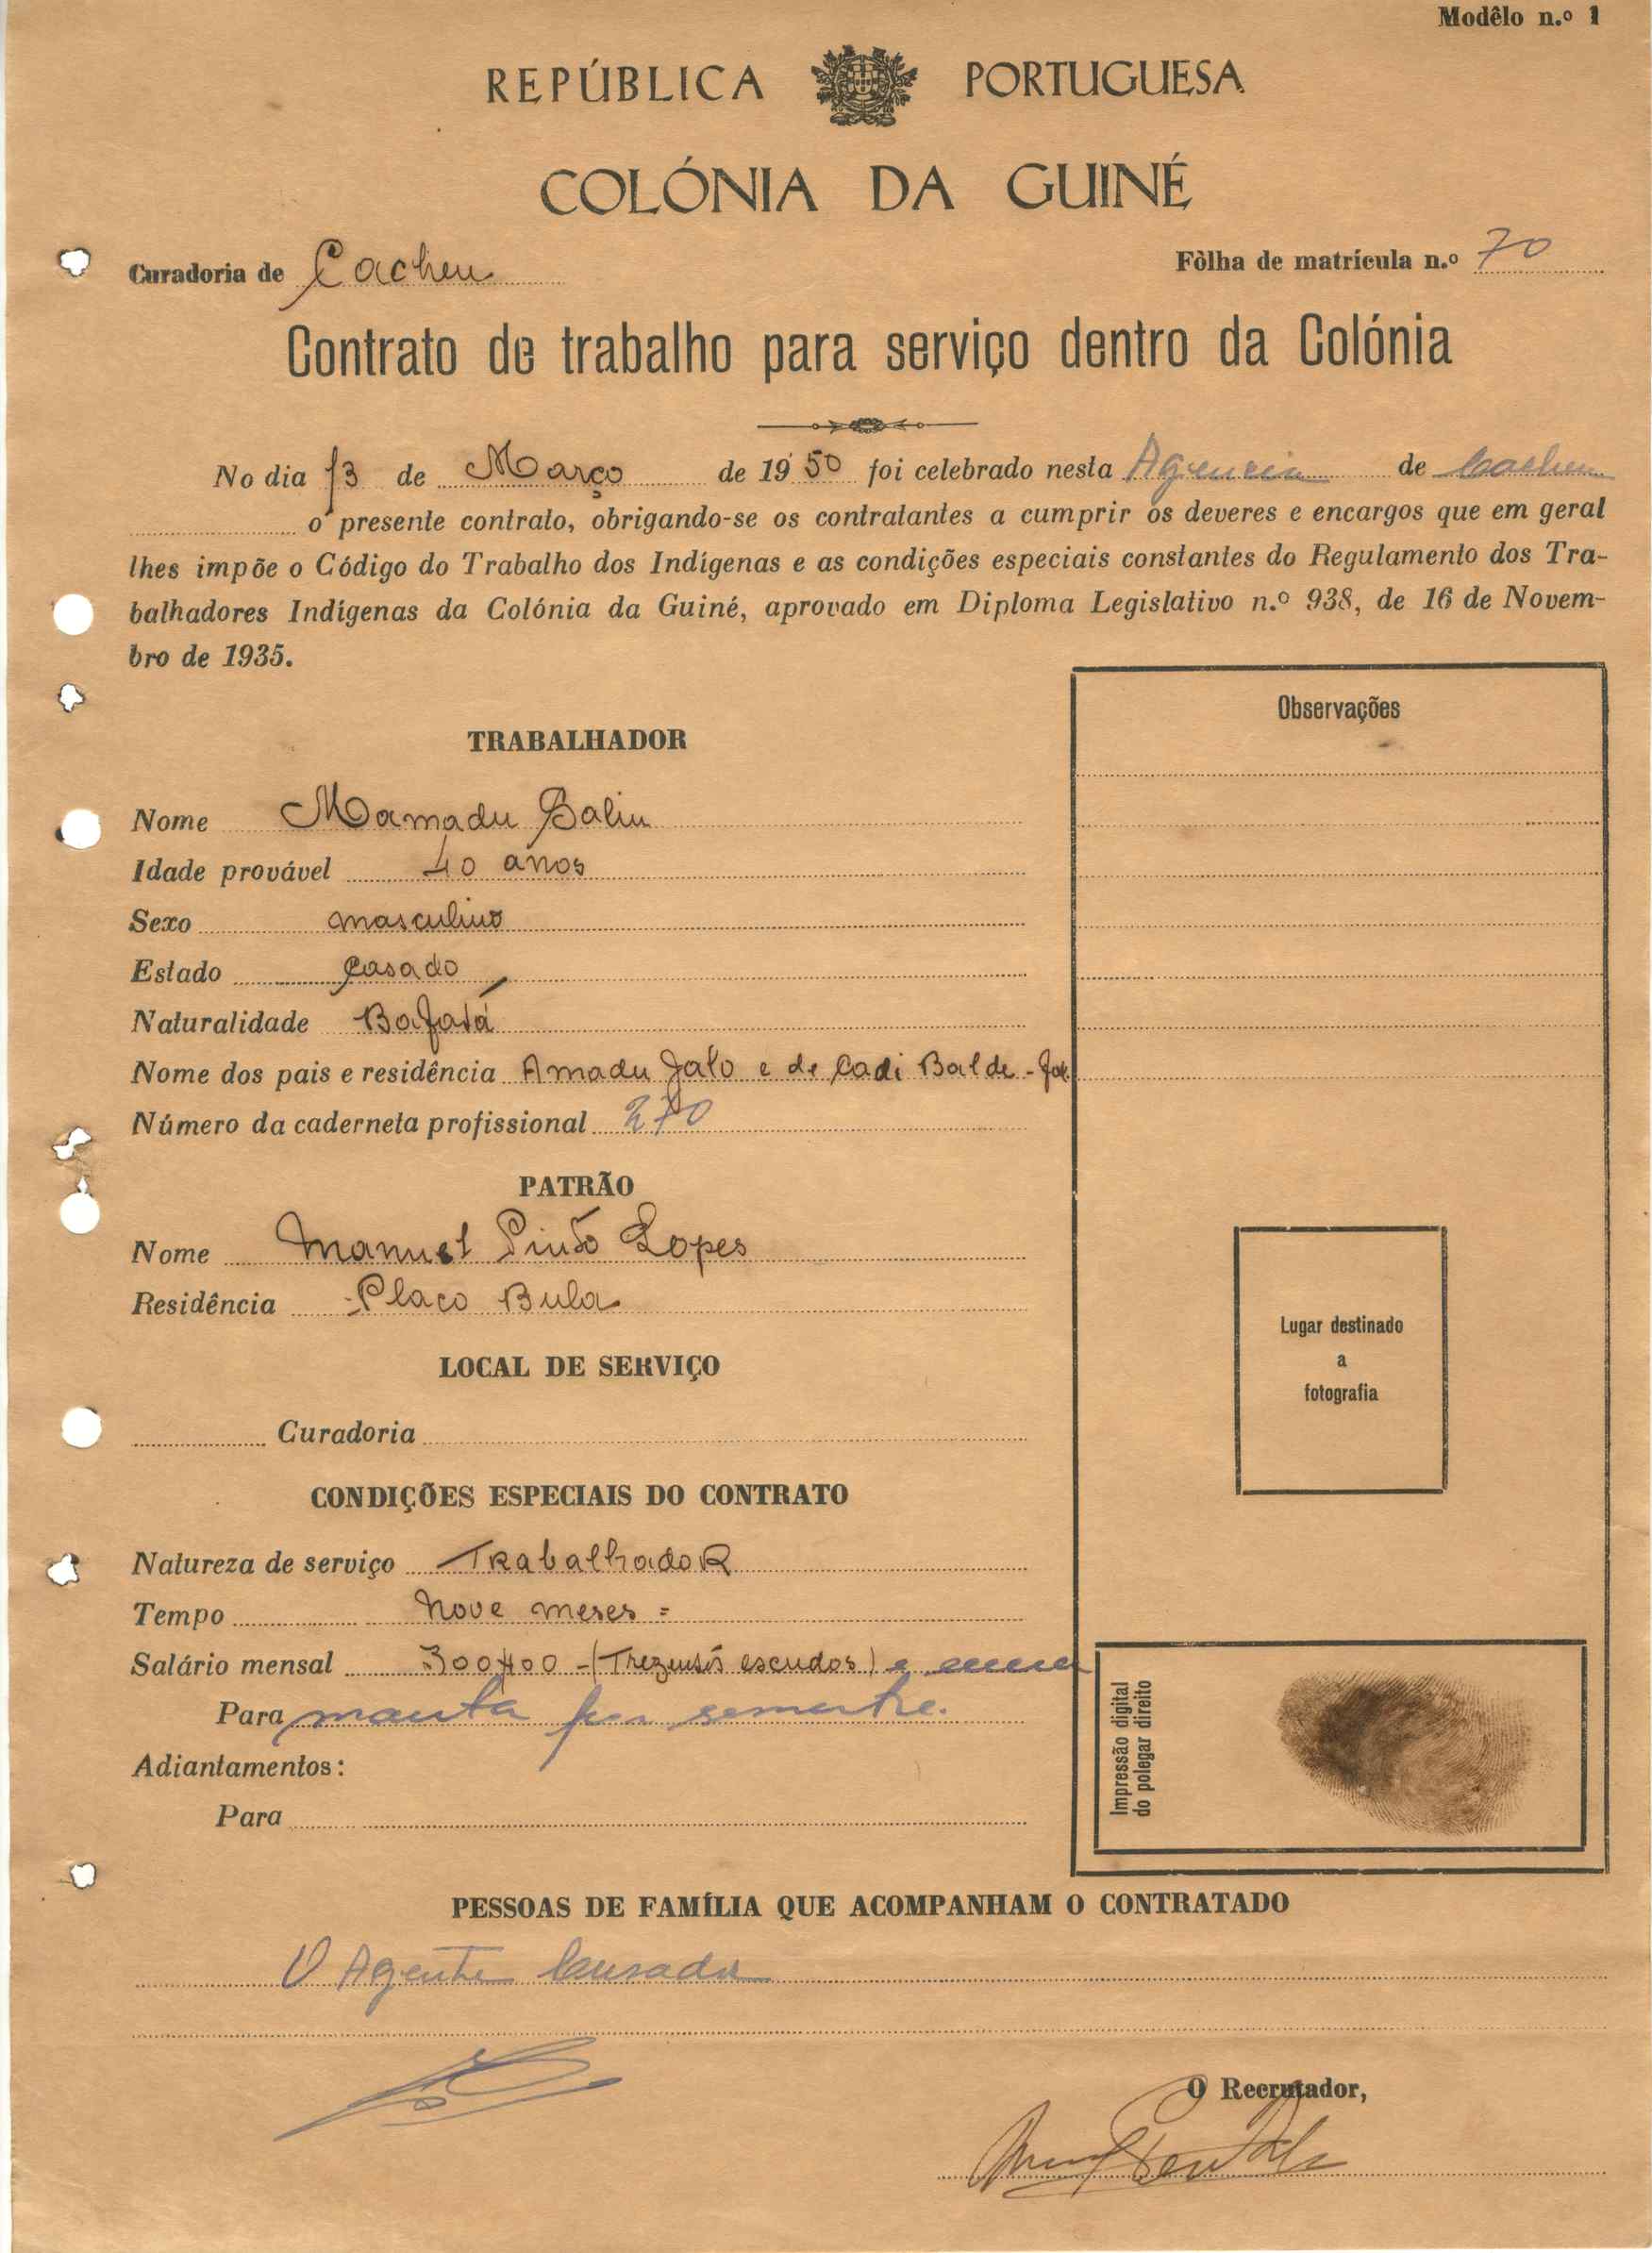 Modêlo n.º 1
REPÚBLICA PORTUGUESA
COLÓNIA DA GUINÉ
Curadoria de Cacheu Fôlha de matrícula n.º 70
Contrato de trabalho para serviço dentro da Colónia
No dia 13 de Março de 1950 foi celebrado nesta Agencia de Cacheu
o presente contrato, obrigando-se os contratantes a cumprir os deveres e encargos que em geral
lhes impõe o Código do Trabalho dos Indígenas e as condições especiais constantes do Regulamento dos Tra-
balhadores Indígenas da Colónia da Guiné, aprovado em Diploma Legislativo n.º 938, de 16 de Novem-
bro de 1935.
Observações
TRABALHADOR
Nome Mamadu Saliu
Idade provável 40 anos
Sexo masculino
Estado casado
Naturalidade Bafatá
Nome dos pais e residência Amadu Jalo e de Cadi Balde
Número da caderneta profissional 270
PATRÃO
Nome Manuel Pinto Lopes
Residência Placo Bula
LOCAL DE SERVIÇO
Curadoria
Lugar destinado
a
fotografia
CONDIÇÕES ESPECIAIS DO CONTRATO
Natureza de serviço Trabalhador
Tempo Nove meses =
Salário mensal 300$00 - (Trezentos escudos) e
Para manta por semestre.
Adiantamentos:
Para
Impressão digital
do polegar direito
PESSOAS DE FAMÍLIA QUE ACOMPANHAM O CONTRATADO
O Agente Curador
O Recrutador,